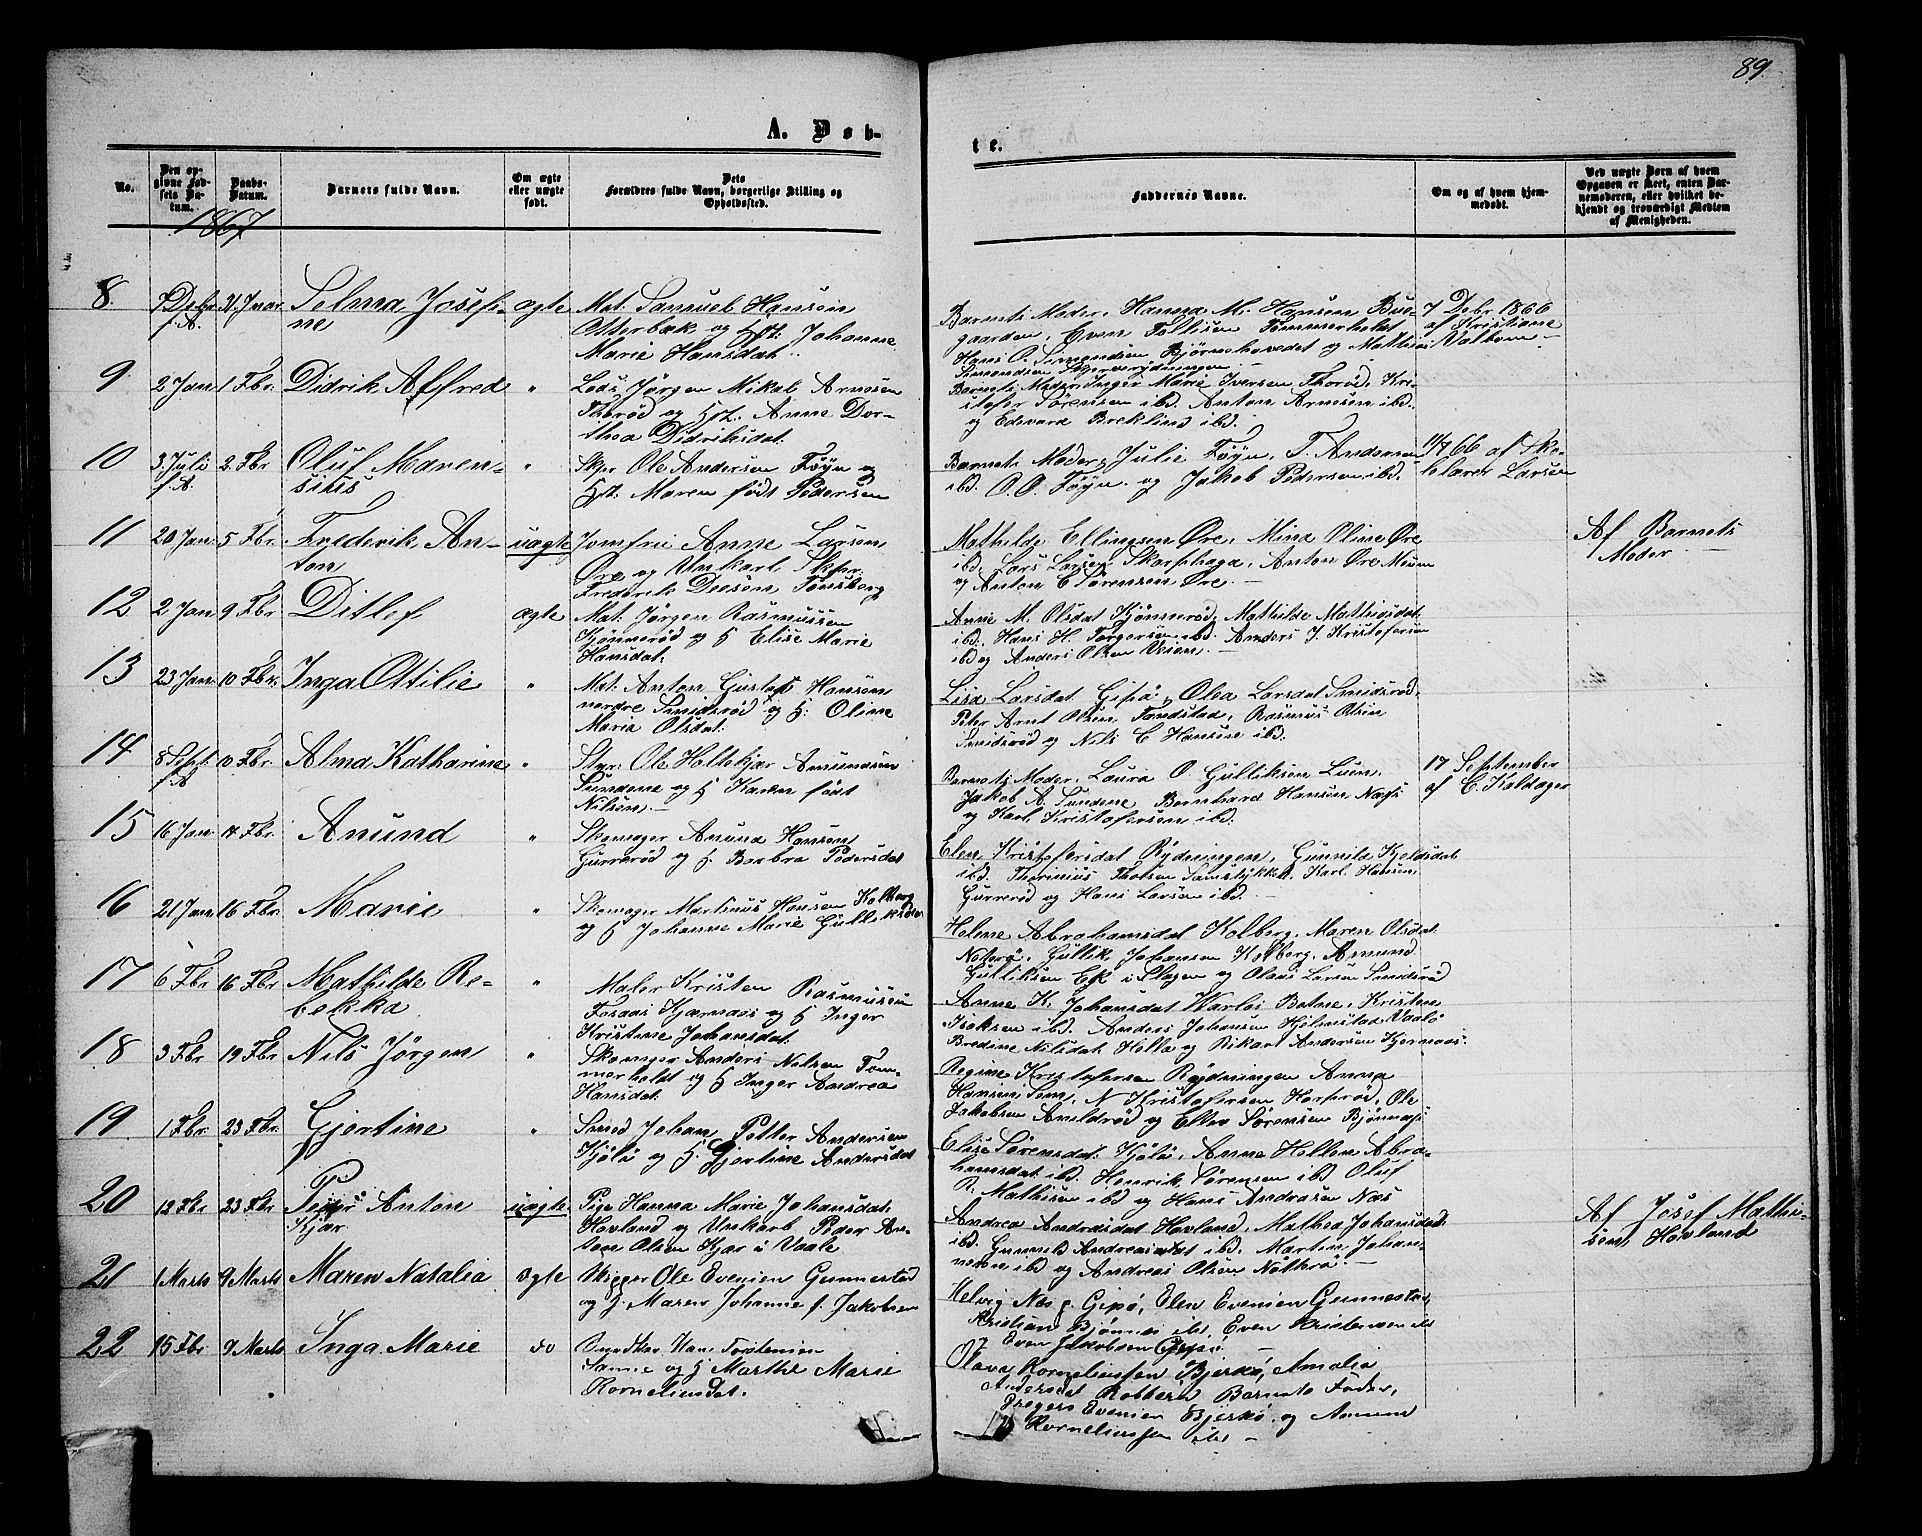 89
A. Døb-
te.
No.
Den op-
givne Fød-
sels Da-
tum.
Daabs-
Datum.
Barnets fulde Navn.
Om ægte
eller uægte
født.
Dets
Forældres fulde Navn, borgerlige Stilling og
Opholdssted.
Faddernes Navne.
Om og af hvem hjem-
medøbt.
Ved uægte Børn af hvem
Opgaven er skeet, enten Bar-
nemoderen, eller hvilket be-
kjendt og troværdigt Medlem
af Menigheden.
1867
8. 7 Debr 31. Janr Selma Josefi- ægte Mat. Samuel Hansen
f.A. ne Otterbæk og Hst. Johanne
Marie Hansdat.
Barnets Moder, Hanna M. Hansen Bue- 7 Debr 1866
gaarden, Even Tollisen Tømmerholt af Kristiane
Hans O. Simondsen Bjørnehovedet og Mathias Valbom
Simondsen
9 2 Jan 1 Fbr. Didrik Alfred " Lods Jørgen Mikal Arnesen
Thorød og Hst. Anne Dor-
thea Didriksdat.
Barnets Moder, Inger Marie Iversen Thorød, Kri-
stofer Sørensen ibd. Anton Arnesen ibd.
og Edvard Breklind ibd.
10 3. Juli 2. Fbr Oluf Maren- " Skpr. Ole Andersen Føyn og
f.A. sius Hst. Maren født Pedersen
Barnets Moder, Julie Føyn, T. Andersen 11/7 66 af Sko-
ibd. O. O. Føyn og Jakob Pedersen ibd. lelærer Larsen
11 20 Jan 5 Fbr. Frederik An- uægte Jomfru Anne Larsen
ton Øre og Unkarl Skpr.
Frederik Deesen Tønsberg
Mathilde Ellingsen Øre, Mina Oline Øre
ibd. Lars Larsen Skarphaga, Anton Øre
og Anton E Sørensen Øre.
Af Barnets
Moder
12 2 Jan 9 Fbr. Ditlef ægte Mat. Jørgen Rasmussen
Kjønnerød og H Elise Marie
Hansdat.
Anne M. Olsdat Kjønnerød, Mathilde Mathiasdat.
ibd. Hans H. Torgersen ibd. Anders J. Kristofersen
ibd og Anders Olsen Veien.
13 23 Jan. 10 Fbr. Inga Ottilie " Mat. Anton Gustaf Hansen
nordre Smidsrød og H. Oline
Maria Olsdat.
Lisa Larsdat Gipø, Olea Larsdat Smidsrød,
Peter Arnt Olsen, Tandstad, Rasmus Olsen
Smidsrød og Nils C Hansen ibd.
14 8 Sept. 10 Fbr. Alma Katharine " Skpr. Ole Holtekjær Amundsen
f.A Sundene og H Karen født
Nilsen.
Barnets Moder, Laura O. Gulliksen Luen, 17 September
Jakob A. Sundene Bernhard Hansen Næs af C. Kaldager
og Karl Kristofersen ibd.
15 16 Jan 14 Fbr. Anund " Skomager Anund Hansen
Gurrerød og H. Barbra Pedersdat
Elen Kristofersdat Rydningen, Gunnild Kjeldsdat
ibd. Thorinius Thoresen Samstykket, Karl Hansen
Gurrerød og Hans Larsen ibd.
16 21 Jan 16 Fbr. Marie " Skomager Martinus Hansen Kolberg
og H Johanne Marie Gulliksdat
Helene Abrahamsdat Kolberg, Maren Olsdat
Nøterø, Gullik Johansen Kolberg, Amund
Gulliksen Eik i Slagen og Olaus Larsen Smidsrød
17 6 Fbr 16 Fbr Mathilde Re- " Maler Kristen Rasmussen
bekka Fosaas Kjærnaas og H Inger
Kristine Johansdat.
Anne K. Johansdat Warløs Botne, Kristen
Isaksen ibd. Anders Johansen Hjelmstad Vaale
Bredine Nilsdat Hella og Rikard Andersen Kjernaas.
18 3 Fbr 19 Fbr Nils Jørgen " Skomager Anders Nilsen Tøm-
merholt og H Inger Andrea
Hansdat.
Regine Kristofersen Rydningen Anna
Hansen Sem, N Kristofersen Horperød, Ole
Jakobsen Arildrød og Ellev Sørensen Bjønnæs
19 1 Fbr 23 Fbr. Gjertine " Smed Johan Petter Andersen
Kjøle og H. Gjertine Andersdat
Elise Sørensdat. Kjøle, Anne Hellene Abra-
hamsdat ibd. Henrik Sørensen ibd Oluf
R. Mathisen ibd og Hans Andrasen Næs
20 12 Fbr 23 Fbr. Peder Anton uægte. Pige Hanna Marie Johansdat.
Kjær Hovland og Unkarl Peder An-
ton Olsen Kjær i Vaale
Andrea Andreasdat Hovland, Mathea Johansdat.
ibd. Gunnild Andreasdat ibd. Martin Johan-
nesen ibd og Andreas Olsen Nøtterø.
Af Josef Mathi-
sen, Hovland
21 1 Marts 9 Marts Maren Natalia ægte Skipper Ole Evensen Gunnestad
og H. Maren Johanne f. Jakobsen
Helvig Næs f. Gipø, Elen Evensen Gunnestad,
Kristian Bjønnes ibd, Even Kristensen ibd
og Even Jakobsen Gipø
22 15 Fbr 9 Marts Inga Marie do Hans Torstensen
og H Marthe Marie
Korneliusdat.
Olava Korneliussen Bjerkø, Amalia
Andersdat Robberød Barnets Fader,
Gregers Evensen Bjerkø og Amund
Korneliussen ibd